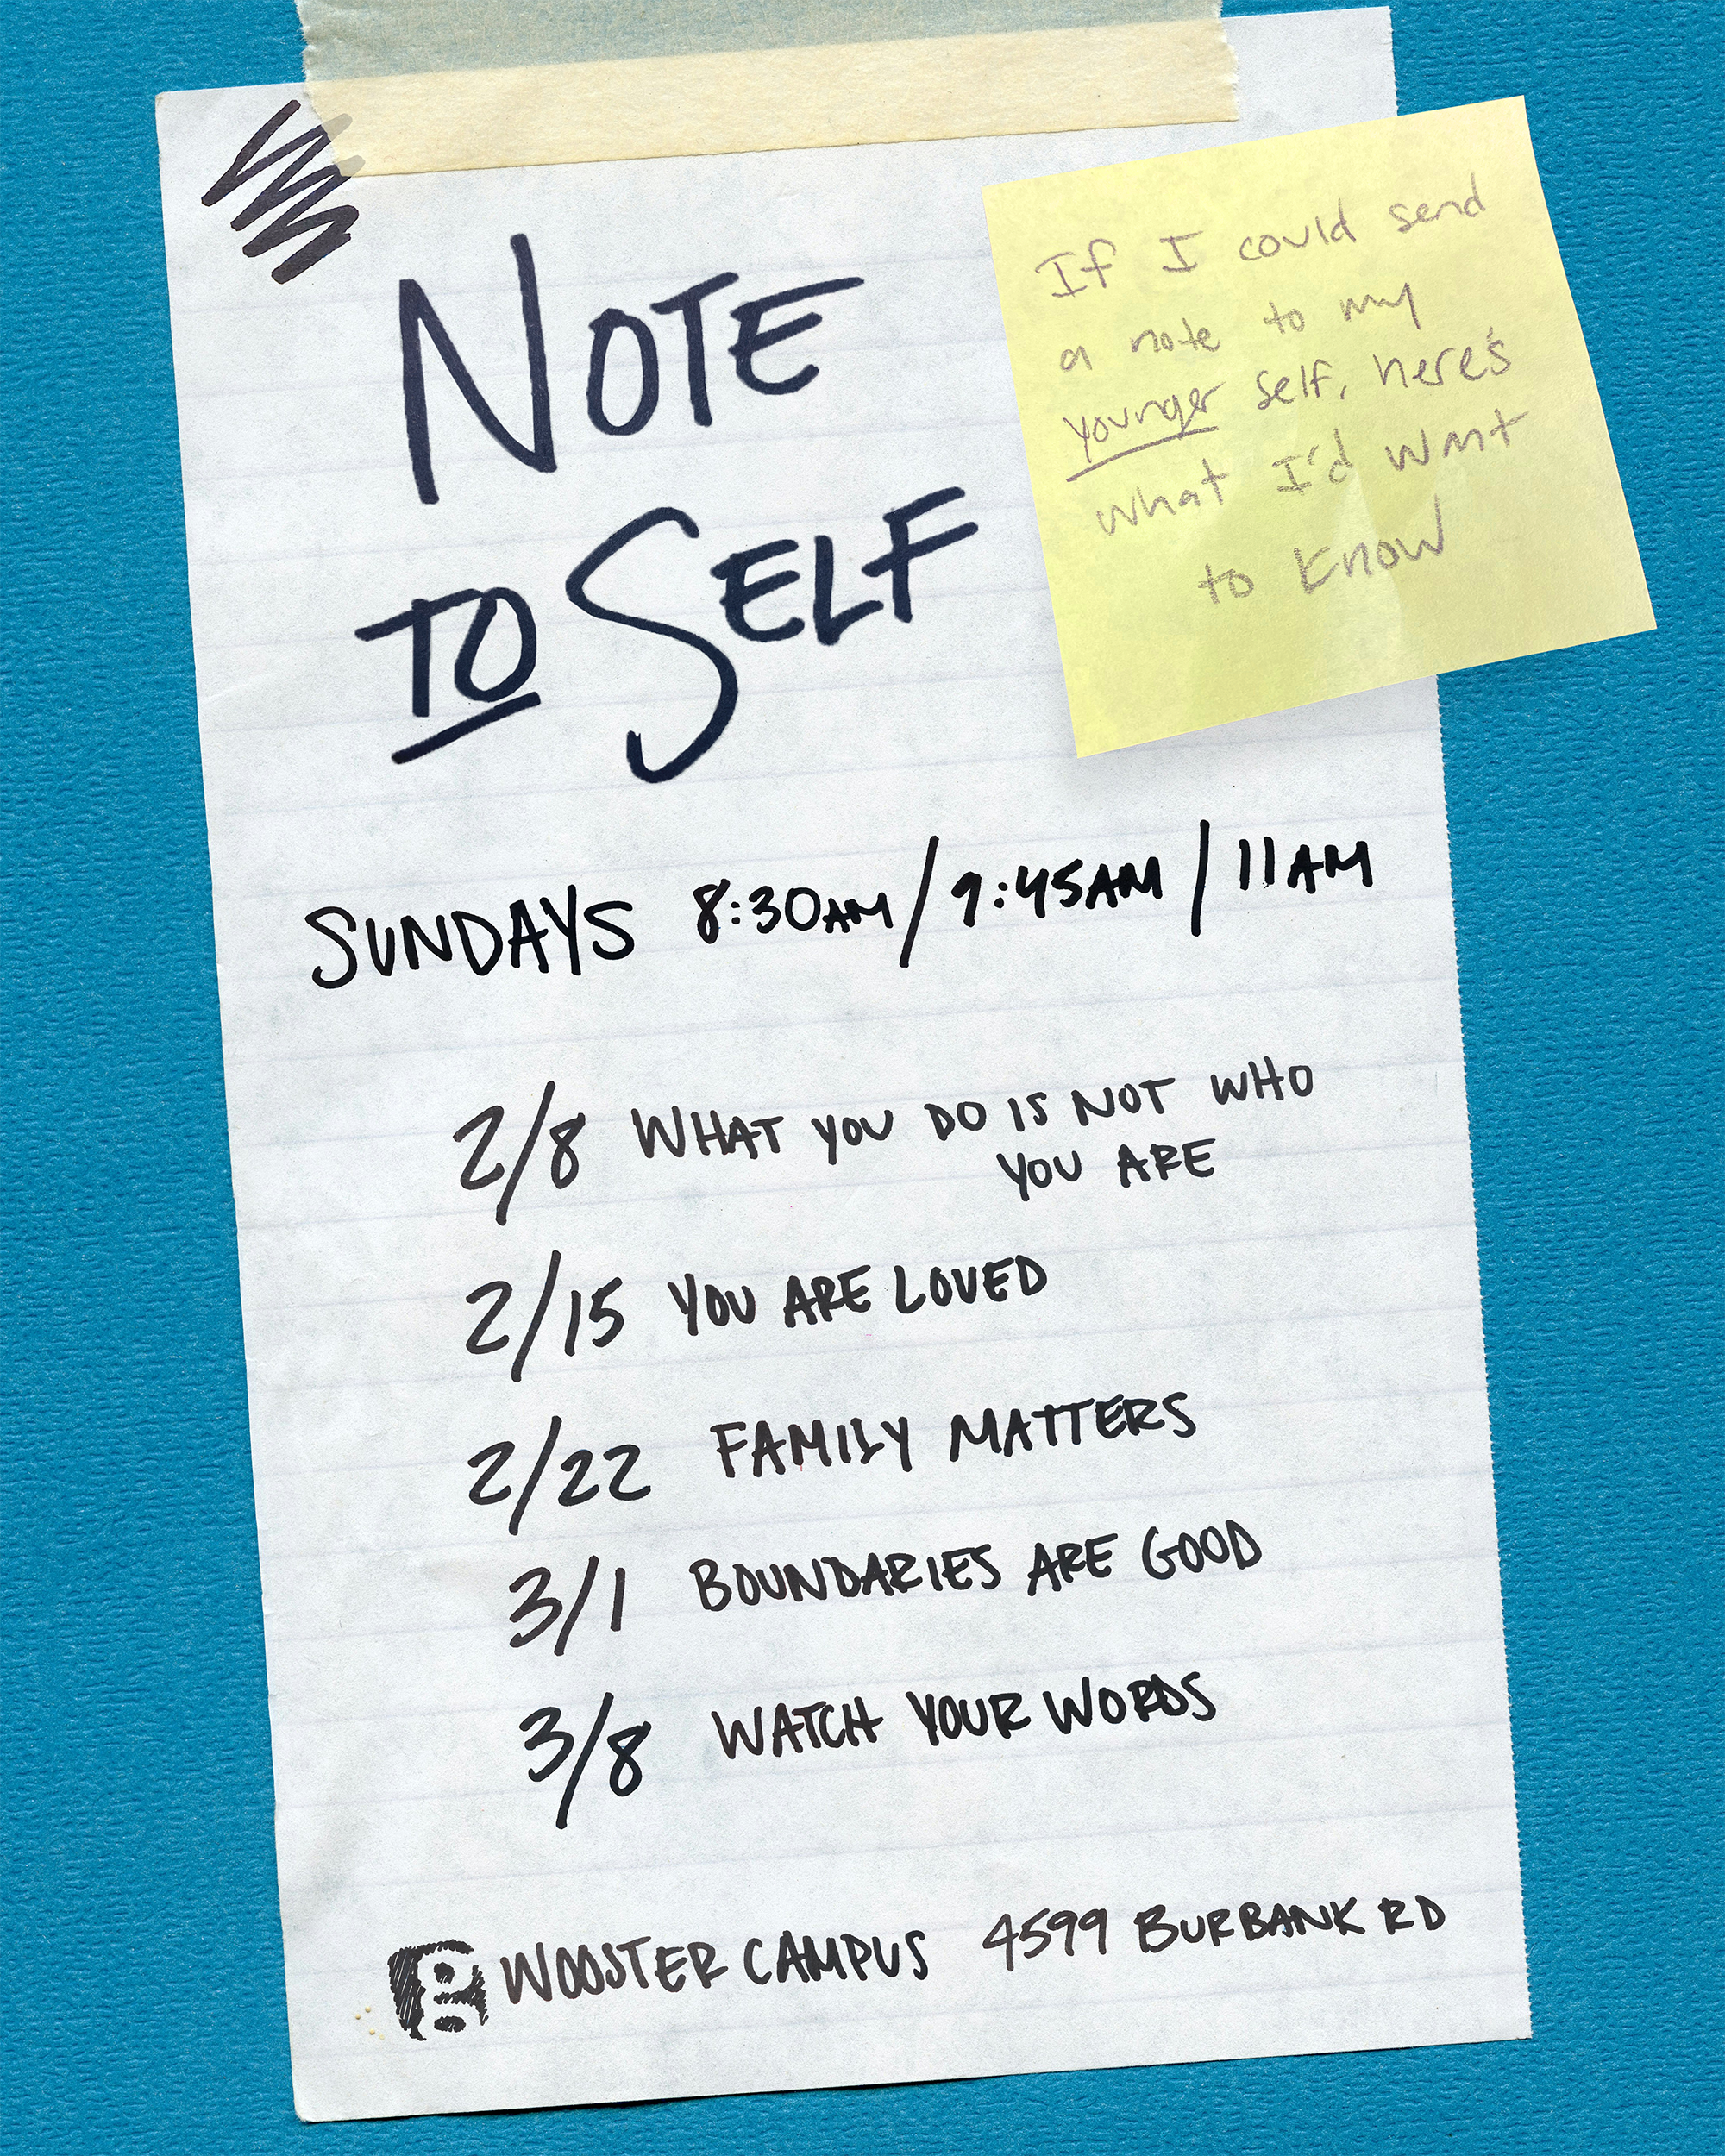 NOTE
TO SELF
If I could send
a note to my
younger self, here's
what I'd want
to know
SUNDAYS 8:30AM / 9:45AM / 11AM
2/8 WHAT YOU DO IS NOT WHO
YOU ARE
2/15 YOU ARE LOVED
2/22 FAMILY MATTERS
3/1 BOUNDARIES ARE GOOD
3/8 WATCH YOUR WORDS
WOOSTER CAMPUS 4599 BURBANK RD